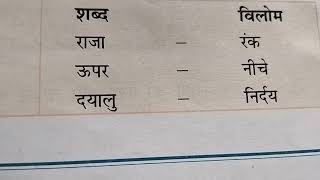 शब्द विलोम
राजा – रंक
ऊपर – नीचे
दयालु – निर्दय